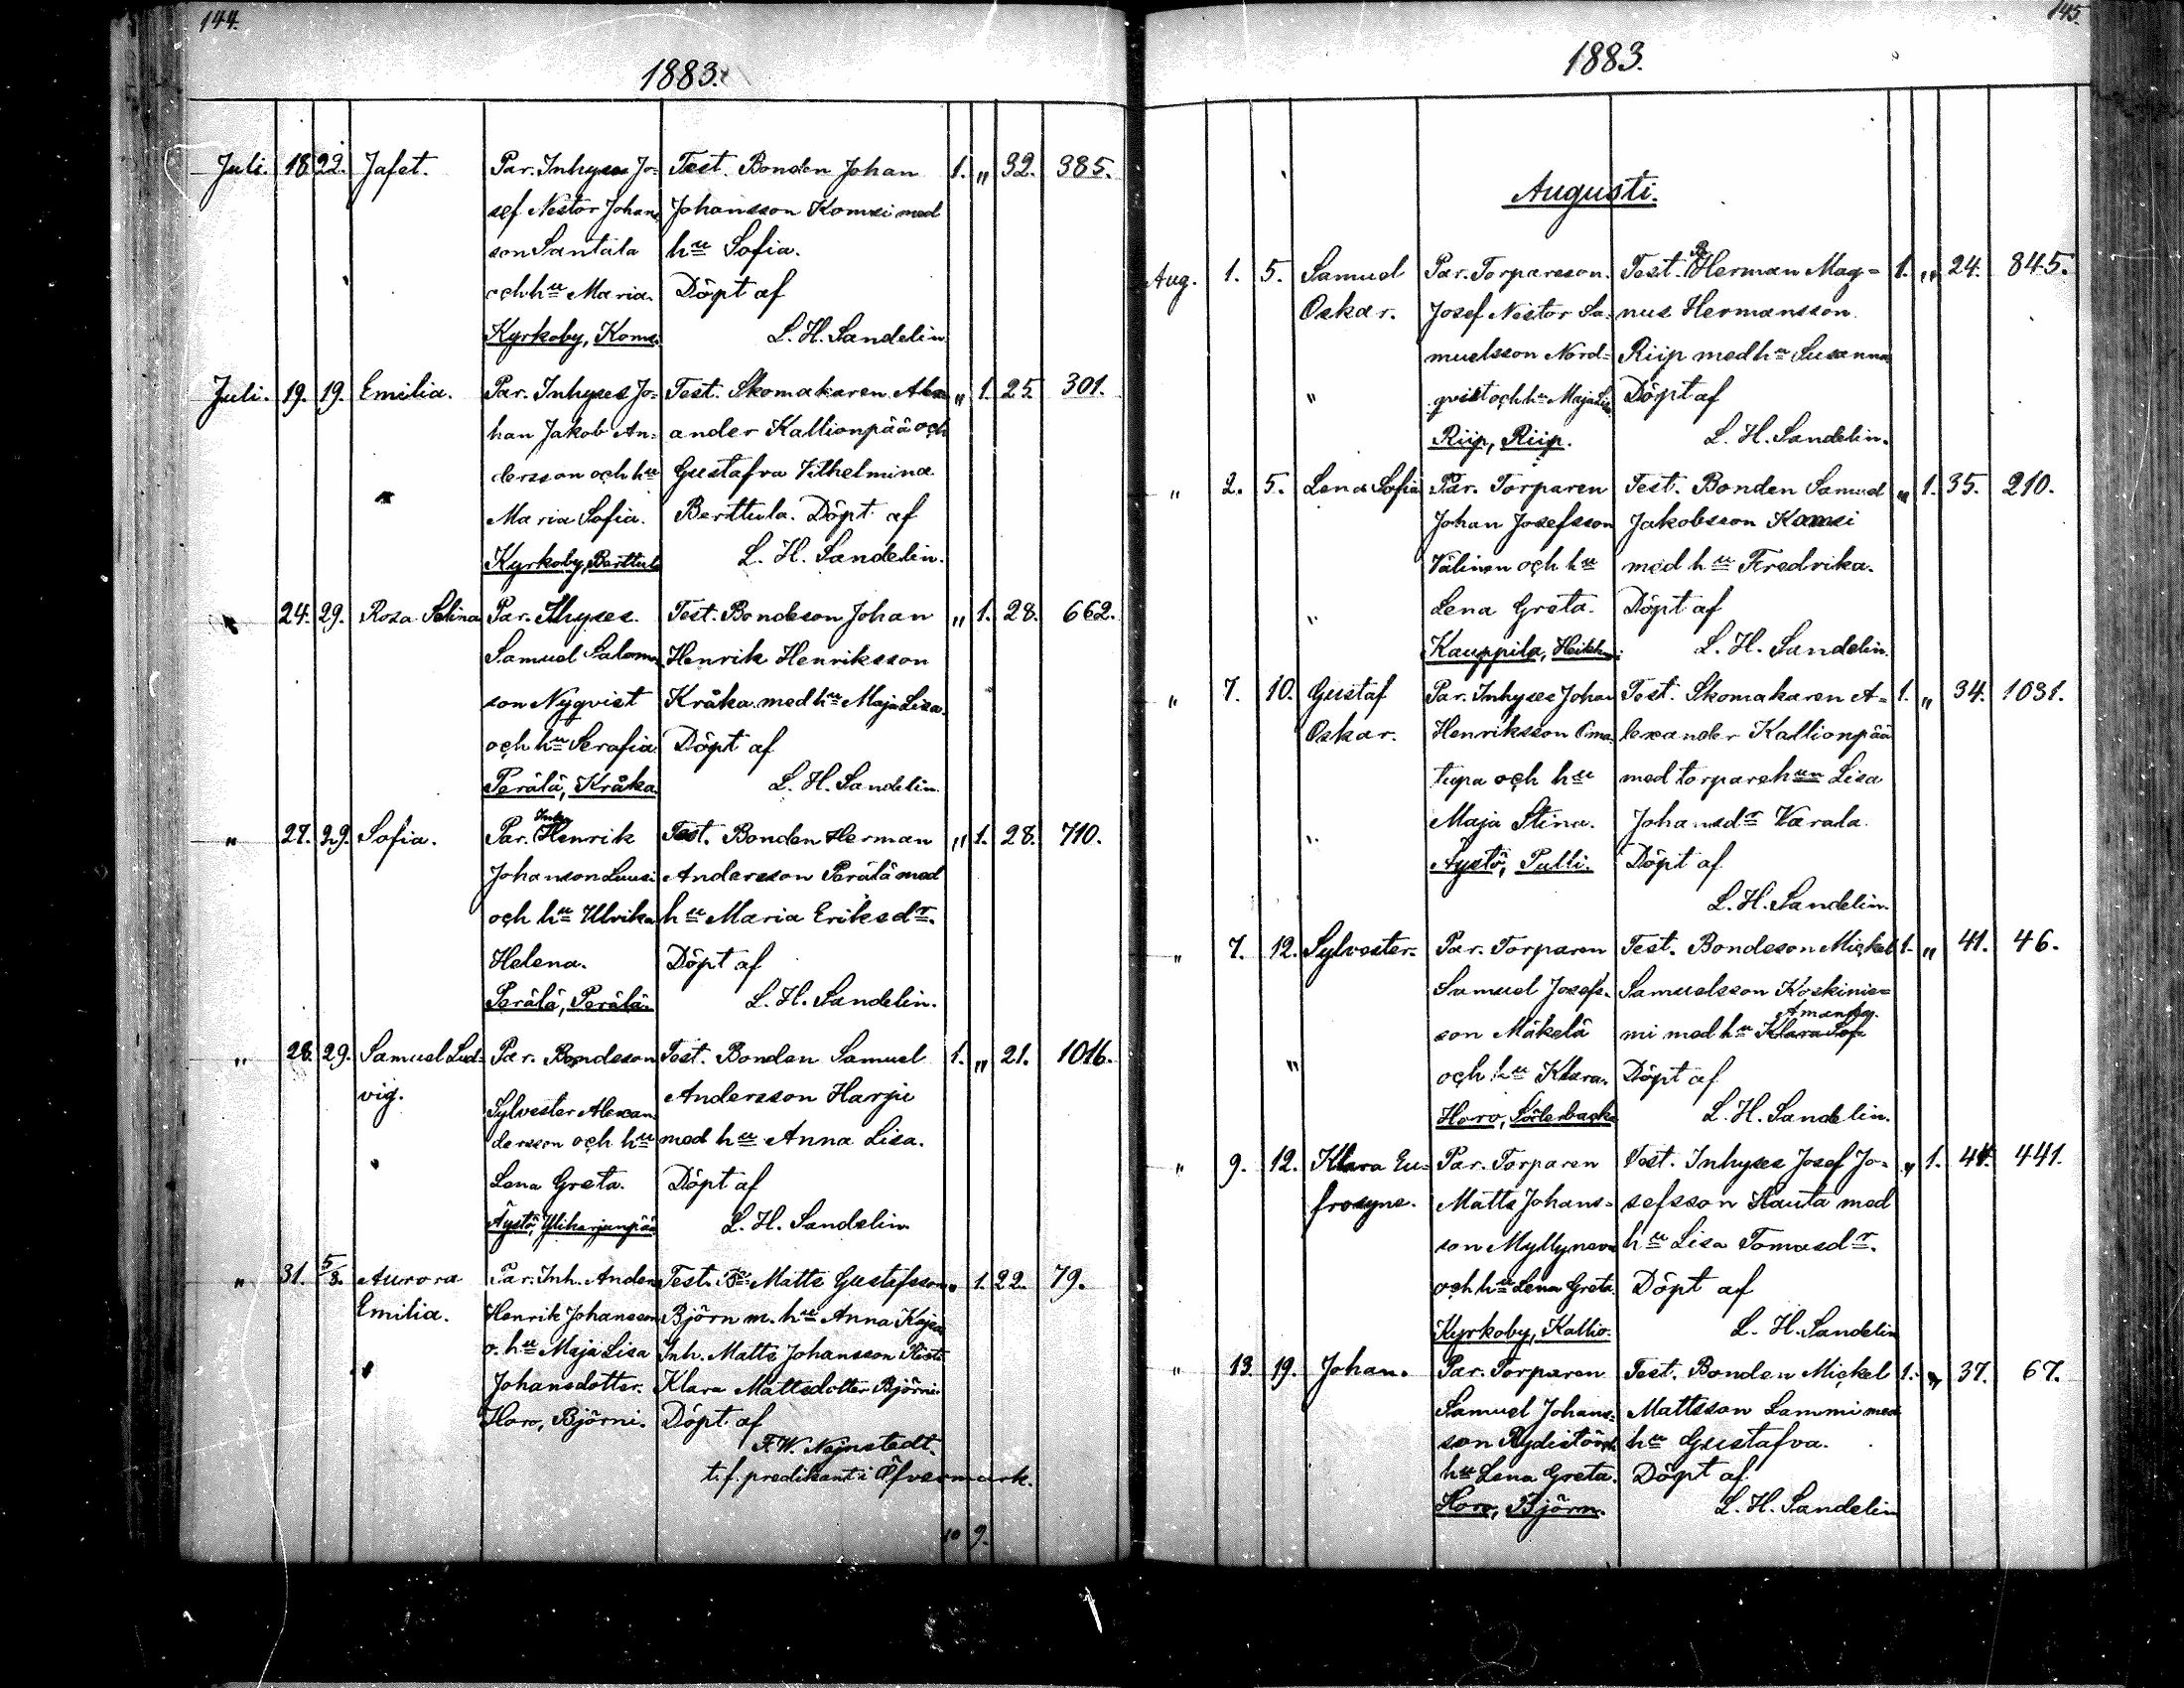 144.
1883.
Juli. 18. 22. Jafet. Par. Inhyses Jo- Test. Bonden Johan 1. " 32. 385.
sef Nestor Johans- Johansson Komsi med
son Santala hu Sofia.
och hu Maria. Döpt af
Kyrkoby, Koms. L. H. Sandelin
Juli. 19. 19. Emilia. Par. Inhyses Jo- Test. Skomakaren Alex- " 1. 25. 301.
han Jakob An- ander Kallionpää och
dersson och hu Gustafva Vilhelmina
Maria Sofia. Berttula. Döpt af
Kyrkoby, Berttul L. H. Sandelin.
24. 29. Rosa Selina Par. Ihyses. Test. Bondeson Johan " 1. 28. 662.
Samuel Salom. Henrik Henriksson
son Nyqvist Kråka med hu Maja Lisa.
och hu Serafia. Döpt af
Perälä, Kråka L. H. Sandelin.
" 27. 29. Sofia. Par. Inhy Henrik Test. Bonden Herman " 1. 28. 710.
Johanson Luusi Andersson Perälä med
och hu Ulrika hu Maria Eriksdr.
Helena. Döpt af
Perälä, Perälä. L. H. Sandelin.
" 28. 29. Samuel Lud- Par. Bondeson Test. Bonden Samuel 1. " 21. 1016.
vig. Sylvester Alexan- Andersson Harju
dersson och hu med hu Anna Lisa.
Lena Greta. Döpt af
Äystö, Yliharjunpää L. H. Sandelin
" 31. 5/8. Aurora Par. Inh. Anders Test. Matts Gustafsson " 1. 22. 79.
Emilia. Henrik Johansson Björn m. hu Anna Kajsa
o. hu Maja Lisa Inh. Matts Johansson
Johansdotter. Klara Mattsdotter Björni.
Horo, Björni. Döpt af
F. W. Najnstedt.
t. f. predikant i Öfvermark.
10 9.
145.
1883.
Augusti.
Aug. 1. 5. Samuel Par. Torpareson. Test. B Herman Mag- 1. " 24. 845.
Oskar. Josef Nestor Sa- nus Hermansson
muelsson Nord- Riip med hu Susanna
" qvist och hu Maja Lisa Döpt af
Riip, Riip. L. H. Sandelin.
" 2. 5. Lena Sofia Par. Torparen Test. Bonden Samuel " 1. 35. 210.
Johan Josefsson Jakobsson Komsi
Välinen och hu med hu Fredrika.
" Lena Greta. Döpt af
Kauppila, Heikk. L. H. Sandelin.
" 7. 10. Gustaf Par. Inhyses Johan Test. Skomakaren A- 1. " 34. 1031.
Oskar. Henriksson Oma- lexander Kallionpää
tupa och hu med torparehun Lisa
" Maja Stina. Johansdr Varala.
Äystö, Pulli. Döpt af
L. H. Sandelin.
" 7. 12. Sylvester. Par. Torparen Test. Bondeson Mickel 1. " 41. 46.
Samuel Josefs- Samuelsson Koskinie-
son Mäkelä mi med hu Klara Sof Amanda.
" och hu Klara. Döpt af
Horo, Söderbacka L. H. Sandelin.
" 9. 12. Klara Eu- Par. Torparen Test. Inhyses Josef Jo- " 1. 44. 441.
frosyne. Matts Johans- sefsson Rauta med
son Myllyneva hu Lisa Tomasdr.
och hu Lena Greta. Döpt af
Kyrkoby, Kallio. L. H. Sandelin
" 13. 19. Johan. Par. Torparen Test. Bonden Mickel 1. " 37. 67.
Samuel Johans- Mattsson Lammi med
son hu Gustafva.
hu Lena Greta. Döpt af
Horo, Björn. L. H. Sandelin